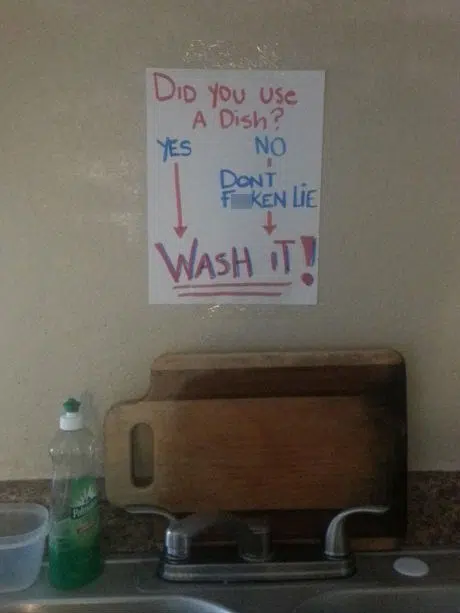 DiD you use
A Dish?
YES NO
DONT
F KEN LiE
WASH iT!